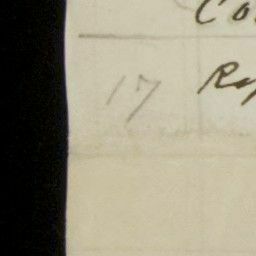 Co
17 Rep